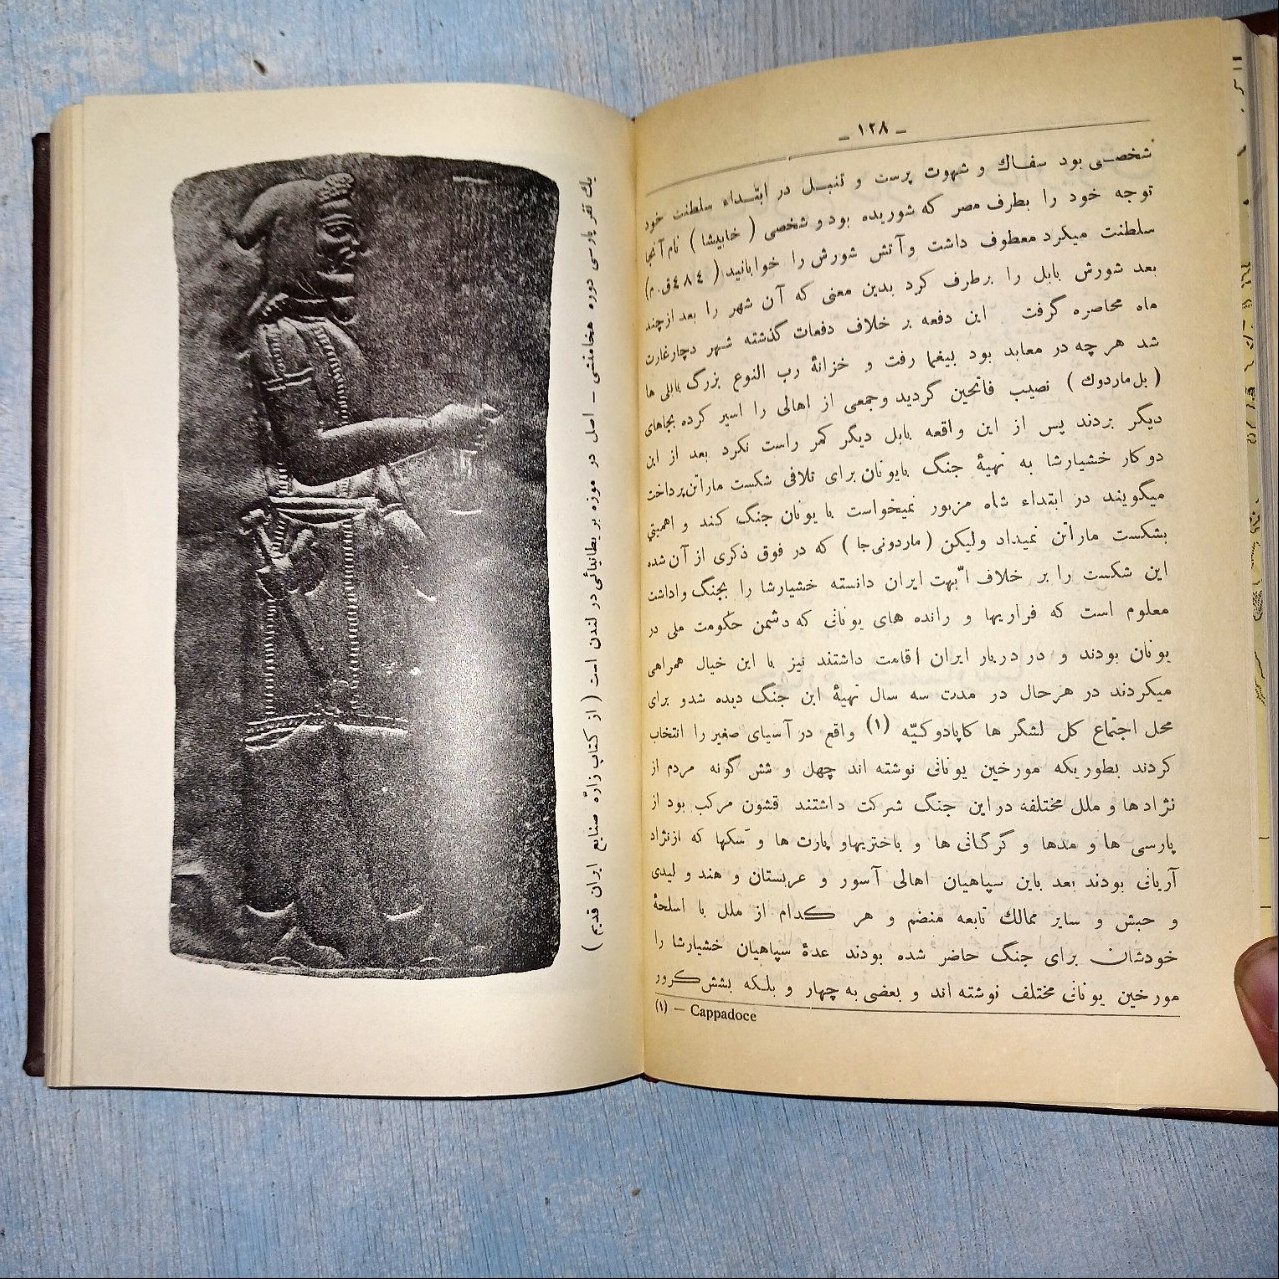 ـ ۱۲۸ ـ
شخصی بود سفاك و شهوت پرست و تنبل در ابتداء سلطنت خود
توجه خود را بطرف مصر که شوریده بود و شخصی ( خابیشا ) نام آنجا
سلطنت میکرد معطوف داشت و آتش شورش را خوابانید ( ٤٨٤ ق. م)
بعد شورش بابل را برطرف کرد بدین معنی که آن شهر را بعد از چند
ماه محاصره گرفت این دفعه بر خلاف دفعات گذشته شهر دچار غارت
شد هر چه در معابد بود بیغما رفت و خزانهٔ رب النوع بزرگ بابلی ها
( بل ماردوك ) نصیب فاتحین گردید و جمعی از اهالی را اسیر کرده بجاهای
دیگر بردند پس از این واقعه بابل دیگر کمر راست نکرد بعد از این
دو کار خشیارشا به تهیهٔ جنگ بایونان برای تلافی شکست ماراتن پرداخت
میگویند در ابتداء شاه مزبور نمیخواست با یونان جنگ کند و اهمیتی
بشکست ماراتن نمیداد ولیکن ( ماردونی جا ) که در فوق ذکری از آن شده
این شکست را بر خلاف ابّهت ایران دانسته خشیارشا را بجنگ واداشت
معلوم است که فراریها و رانده های یونانی که دشمن حکومت ملی در
یونان بودند و در دربار ایران اقامت داشتند نیز با این خیال همراهی
میکردند در هرحال در مدت سه سال تهیهٔ این جنگ دیده شد و برای
محل اجتماع کل لشگر ها کاپادوکیّه (۱) واقع در آسیای صغیر را انتخاب
کردند بطوریکه مورخین یونانی نوشته اند چهل و شش گونه مردم از
نژادها و ملل مختلفه در این جنگ شرکت داشتند قشون مرکب بود از
پارسی ها و مدها و گرگانی ها و باختریها و پارت ها و سکها که از نژاد
آریانی بودند بعد باین سپاهیان اهالی آسور و عربستان و هند و لیدی
و حبش و سایر ممالك تابعه منضم و هر کدام از ملل با اسلحهٔ
خودشان برای جنگ حاضر شده بودند عدهٔ سپاهیان خشیارشا را
مورخین یونانی مختلف نوشته اند و بعضی به چهار و بلکه بشش کرور
(۱) — Cappadoce
یك نفر پارسی دوره هخامنشی ـ اصل در موزه بریطانیائی در لندن است ( از کتاب زارّه صنایع ایران قدیم )